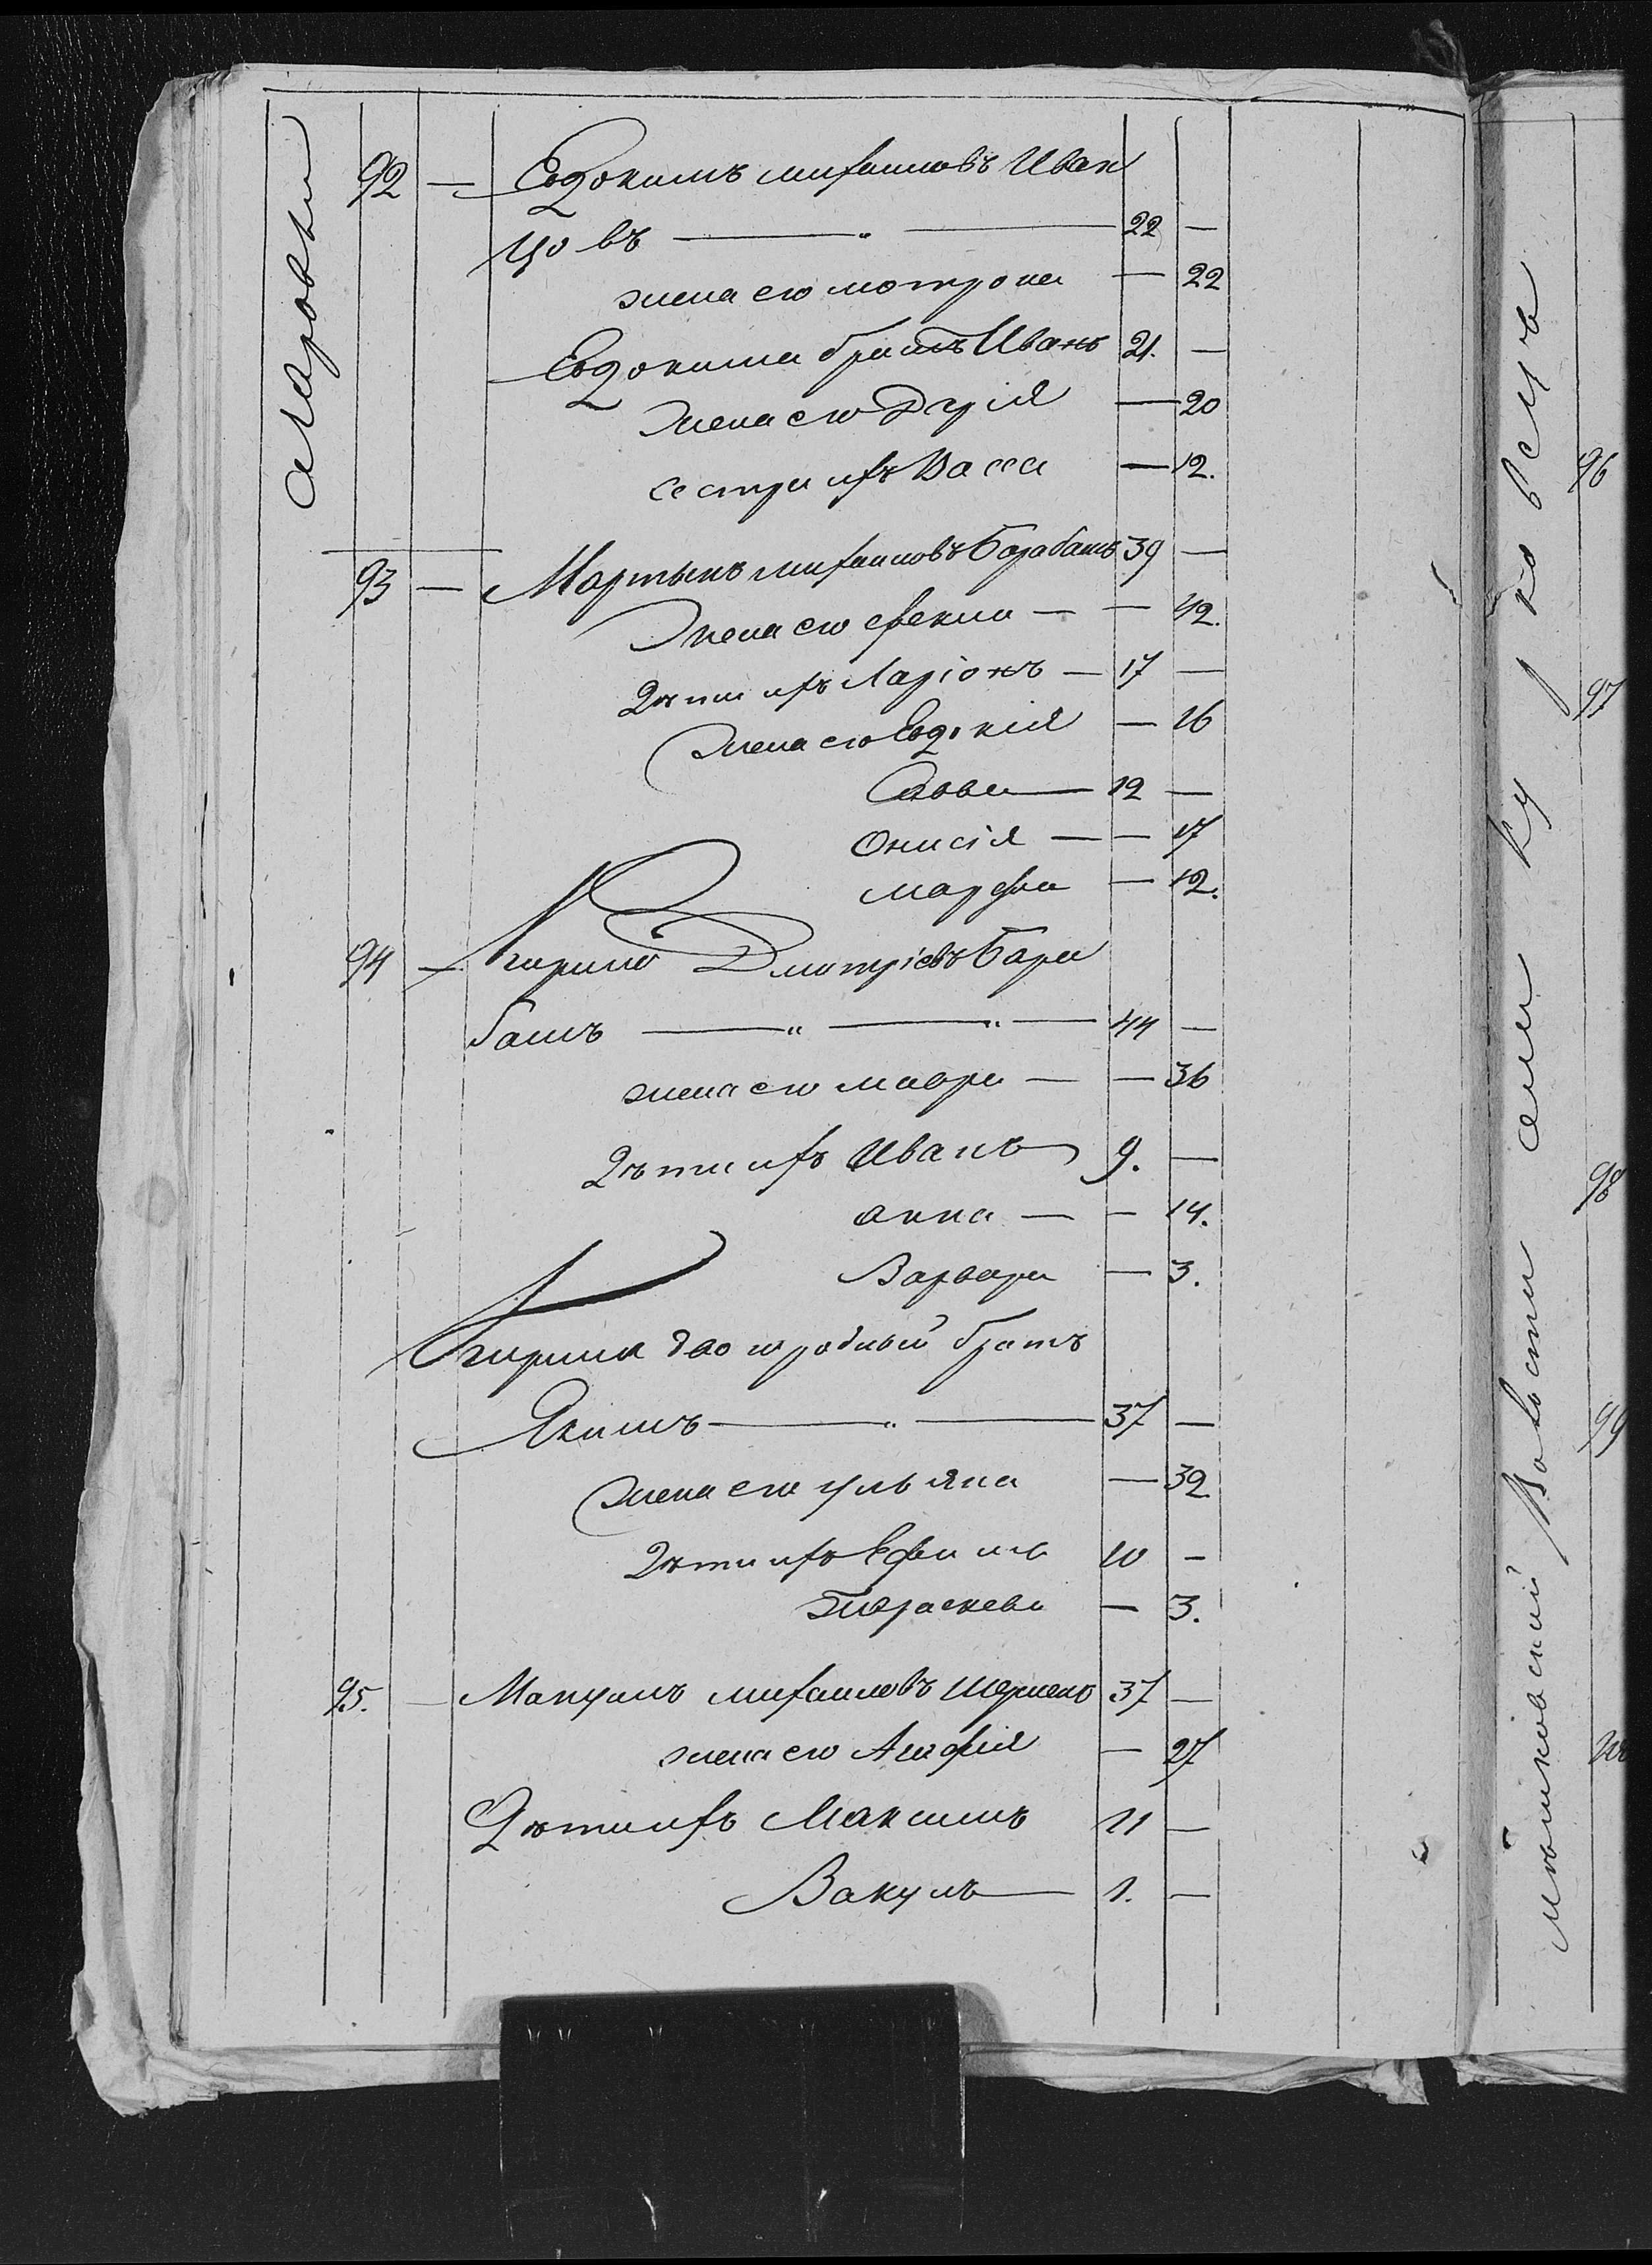 92 — Евдокимъ михаиловъ Иван
цовъ — " — 22 —
жена его мотрона — 22
Евдокима братъ Иванъ 21. —
жена его Дария — 20
сестра ихъ Васса — 12.
93 — Мартынъ михаиловъ Барабашъ 39 —
жена его феκла — — 42.
дѣти ихъ Ларіонъ — 17 —
жена его Евдокія — 16
Савва — 12 —
Онисія — — 17
марфа — 12.
94 — Кирило Дмитріевъ Бара
башъ — " — " — 44 —
жена его мавра — — 36
дѣти ихъ Иванъ 9. —
анна — — 14.
Варвара — 3.
Кирила двоюродный братъ
Якимъ — " — 37 —
жена его ульяна — 32
дѣти ихъ Ефимъ 10 —
Параскева — 3.
95. — михаиловъ 37 —
жена его Агафия — 27
Дѣти ихъ Максимъ 11 —
Вакулъ — 1. —
96
97
98
99
Волости